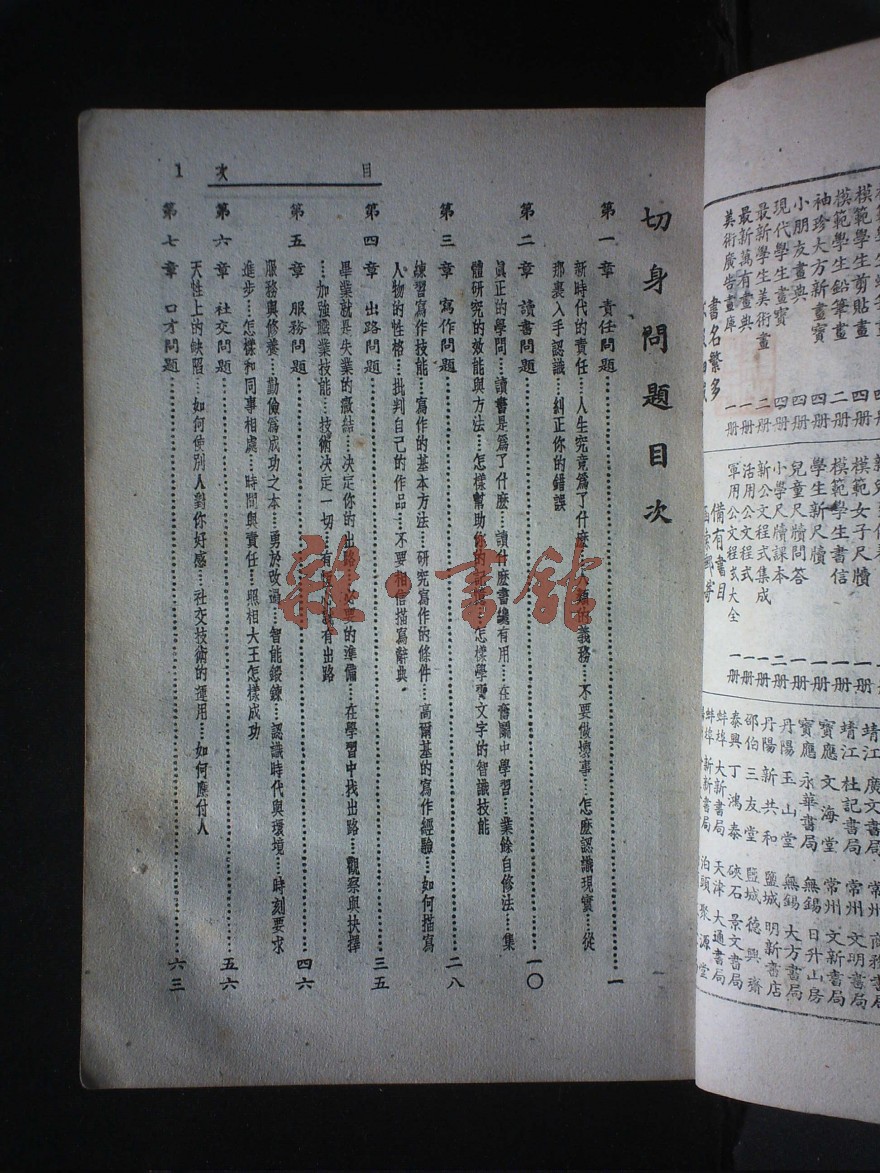 目次 1
切身問題目次
第一章 責任問題……一
新時代的責任……人生究竟爲了什麼……人類的義務……不要做壞事……怎麼認識現實……從
那裏入手認識……糾正你的錯誤
第二章 讀書問題……一〇
眞正的學問……讀書是爲了什麼……讀什麼書纔有用……在奮鬭中學習……業餘自修法……集
體研究的效能與方法……怎樣幫助你的記憶……怎樣學習文字的智識技能
第三章 寫作問題……二八
練習寫作技能……寫作的基本方法……研究寫作的條件……高爾基的寫作經驗……如何描寫
人物的性格……批判自己的作品……不要相信描寫辭典
第四章 出路問題……三五
畢業就是失業的癥結……決定你的出路……必要的準備……在學習中找出路……觀察與抉擇
……加強職業技能……技術决定一切……有恆心就有出路
第五章 服務問題……四六
服務與修養……勤儉爲成功之本……勇於改過……智能鍛鍊……認識時代與環境……時刻要求
進步……怎樣和同事相處……時間與責任……照相大王怎樣成功
第六章 社交問題……五六
天性上的缺陷……如何使別人對你好感……社交技術的運用……如何應付人
第七章 口才問題……六三
雜·書館
模範學生剪貼畫 四册
模範學生鉛筆畫 二册
袖珍大方新畫寶 四册
小朋友畫典 四册
現代學生畫寶 四册
最新學生美術畫 二册
最新萬有畫典 一册
美術廣告畫庫 一册
書名繁多
模範女子尺牘 一册
模範學生書信 一册
學生新尺牘 一册
兒童尺牘問答 一册
小學尺牘課本 二册
新公文程式集成 一册
活用公文程式 一册
軍用公文程式大全 一册
備有書目
靖江 廣文書局
靖江 杜記書局 常州 文明書局
寶應 文海堂 常州 文新書局
寶應 永華書局 無錫 日升山房
丹陽 玉山堂 無錫 大方書局
丹陽 新共和 鹽城 明新書店
邵伯 三友堂 鹽城 德興齋
泰興 丁鴻泰 硤石 景文書局
蚌埠 大新書局 天津 大通書局